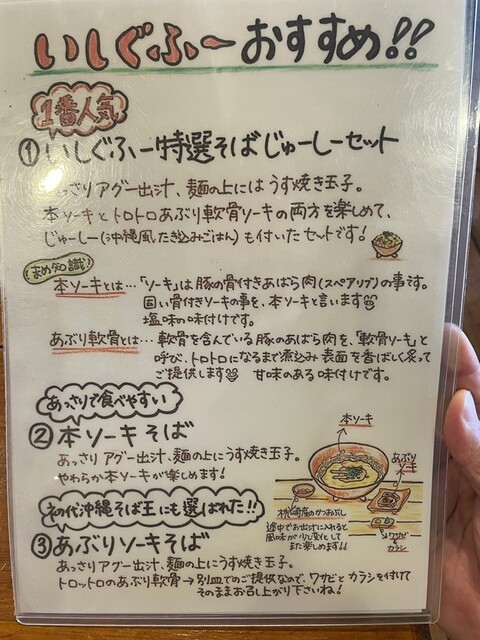 いしぐふーおすすめ!!
1番人気
①いしぐふー特選そばじゅーしーセット
あっさりアグー出汁、麺の上にはうす焼き玉子。
本ソーキとトロトロあぶり軟骨ソーキの両方を楽しめて、
じゅーしー(沖縄風たき込みごはん)も付いたセットです!
まめ知識
本ソーキとは…「ソーキ」は豚の骨付きあばら肉(スペアリブ)の事です。
固い骨付きソーキの事を、本ソーキと言います
塩味の味付けです。
あぶり軟骨とは…軟骨を含んでいる豚のあばら肉を、「軟骨ソーキ」と
呼び、トロトロになるまで煮込み表面を香ばしく炙って
ご提供します 甘味のある味付けです。
あっさりで食べやすい
②本ソーキそば
あっさりアグー出汁、麺の上にうす焼き玉子。
やわらか本ソーキが楽しめます!
本ソーキ
あぶりソーキ
枕崎産のかつおぶし
途中でお出汁に入れると
風味が少し変化して
また楽しめます!!
ワサビ
カラシ
初代沖縄そば王にも選ばれた!!
③あぶりソーキそば
あっさりアグー出汁、麺の上にうす焼き玉子。
トロットロのあぶり軟骨→別皿でのご提供なので、ワサビとカラシを付けて
そのままお召し上がり下さいね!